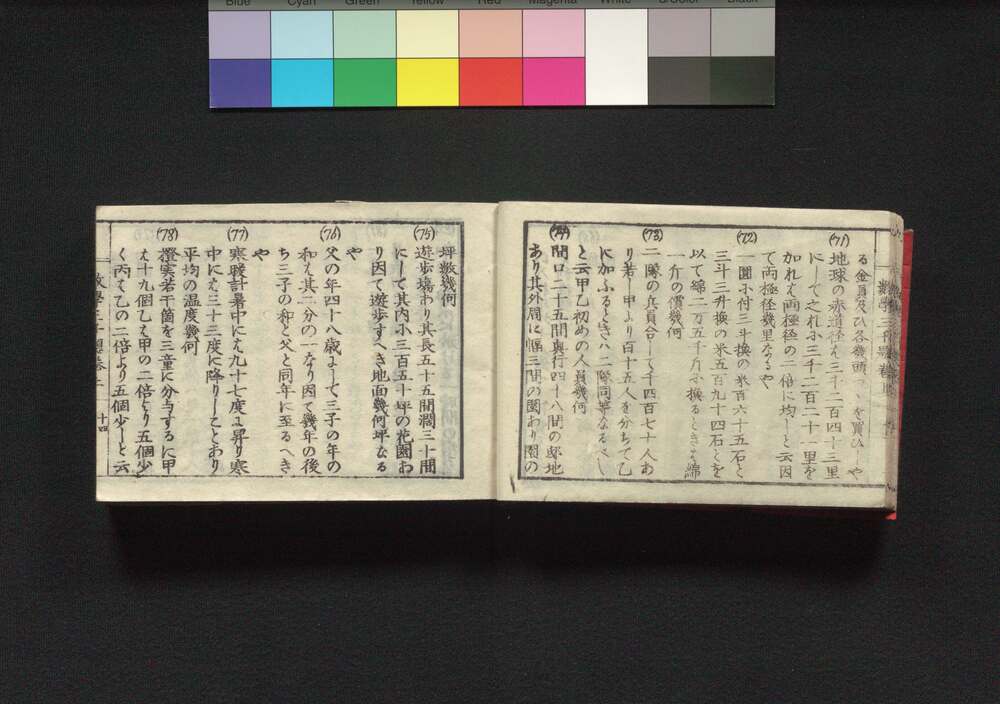 Blue Cyan Green Yellow Red Magenta White 3/Color Black
る金員及ひ各幾頭を買ひしや
(71) 地球の赤道径は三千二百四十三里
にして之れに三千二百二十一里を
加れは両極径の二倍に均しと云因
て両極径幾里なるや
(72) 一圓に付三斗換の米百六十五石と
三斗三升換の米五百九十四石とを
以て綿二万五千斤に換るときは綿
一斤の價幾何
(73) 二隊の兵員合して千四百七十人あ
り若し甲より百十五人を分ちて乙
に加ふるときハ二隊同等なるべし
と云甲乙初めの人員幾何
(74) 間口二十五間奥行四十八間の邸地
あり其外周に幅三間の圍あり圍の
坪数幾何
(75) 遊歩場あり其長五十五間濶三十間
にして其内に三百五十坪の花園あ
り因て遊歩すへき地面幾何坪なる
や
(76) 父の年四十八歳にして三子の年の
和は其二分の一なり因て幾年の後
ち三子の和と父と同年に至るへき
や
(77) 寒暖計暑中には九十七度に昇り寒
中には三十三度に降りしことあり
平均の温度幾何
(78) 橙実若干箇を三童に分与するに甲
は十九個乙は甲の二倍より五個少
く丙は乙の二倍より五個少しと云
数學三千題巻二 十四